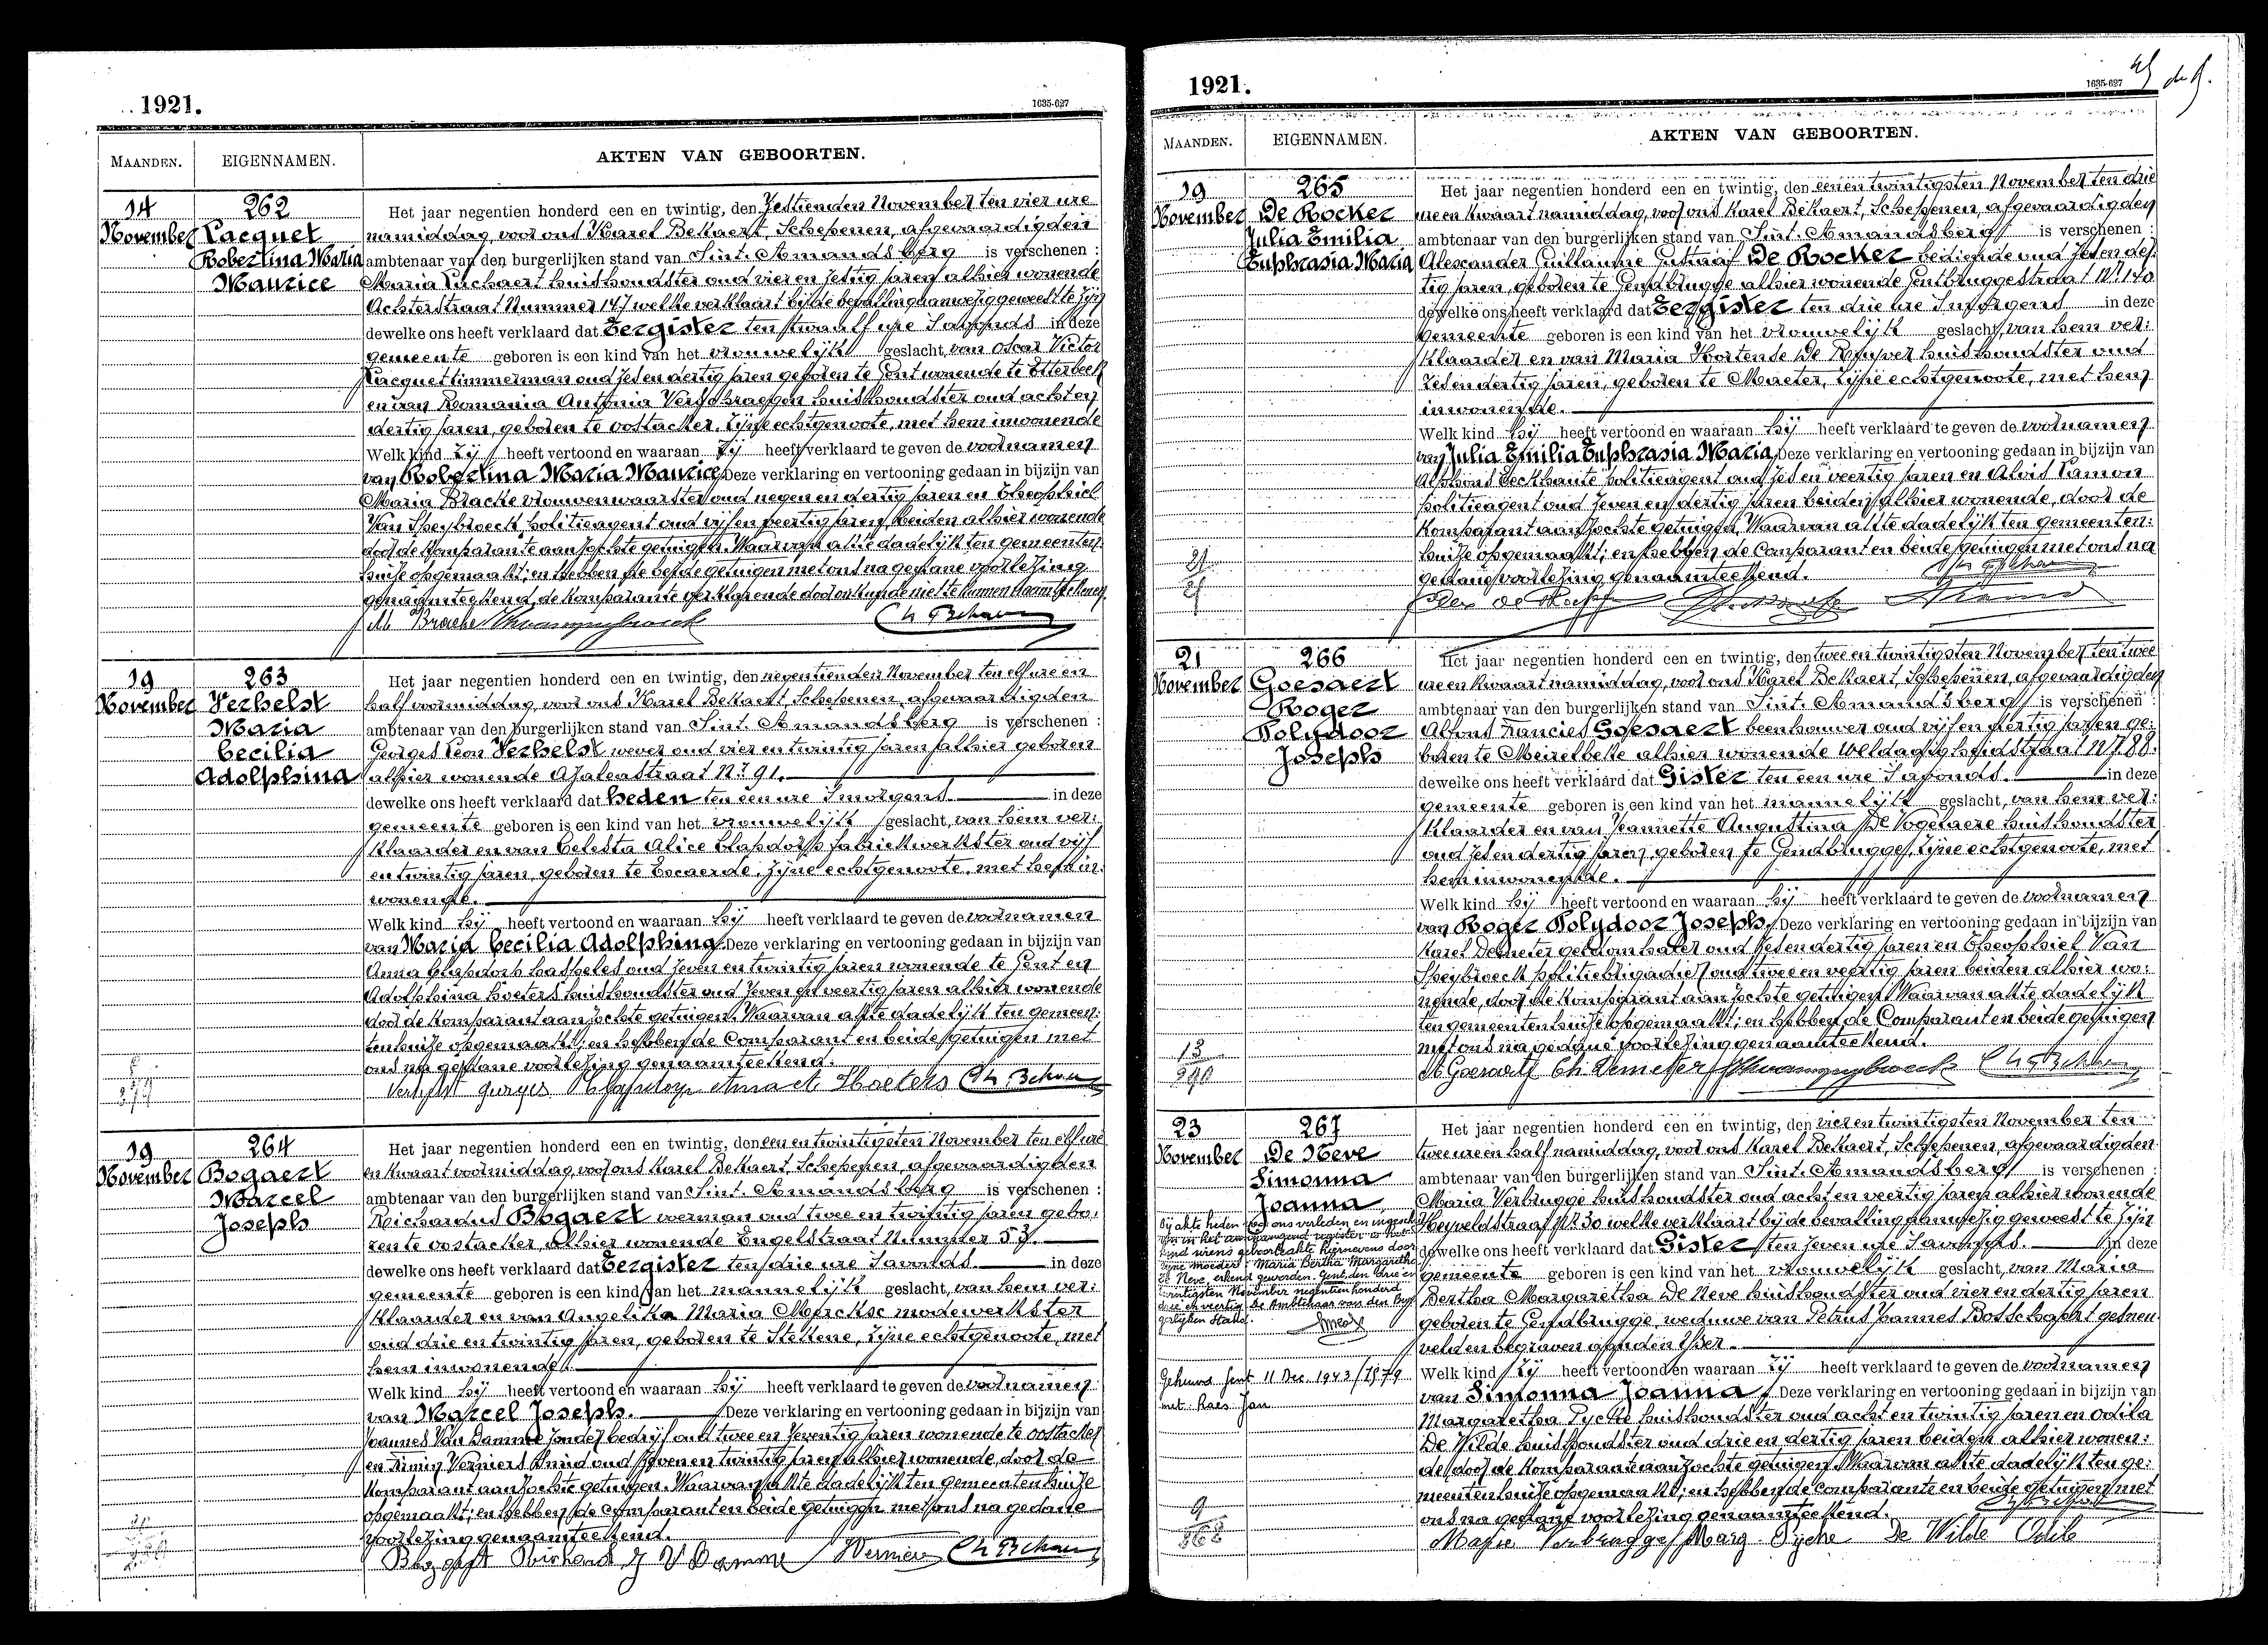 1921.
1635-627
MAANDEN.
EIGENNAMEN.
AKTEN VAN GEBOORTEN.
14
November
262
Pacquet
Robertina Maria
Maurice
Het jaar negentien honderd een en twintig, den zestienden November ten vier ure
namiddag, voor ons Karel Bekaert, Schepenen, afgevaardigden
ambtenaar van den burgerlijken stand van Sint. Amandsberg is verschenen :
Maria huishoudster oud vier en zestig jaren alhier wonende
Achterstraat Nummer 147 welke verklaart bij de bevalling aanwezig geweest te zijn
dewelke ons heeft verklaard dat Eergister ten twaalf ure 's avonds in deze
gemeente geboren is een kind van het vrouwelijk geslacht, van Oscar Victor
Pacquet timmerman oud zes en dertig jaren geboren te Gent wonende te Etterbeek
en van Romania Antonia huishoudster oud acht en
dertig jaren, geboren te Oostacker, zijne echtgenoote, met hem inwonende
Welk kind Zij heeft vertoond en waaraan Zij heeft verklaard te geven de voornamen
van Robertina Maria Maurice Deze verklaring en vertooning gedaan in bijzijn van
Maria Bracke vrouwenwaarster oud negen en dertig jaren en Theophiel
Van Speybroeck, politieagent oud vijf en veertig jaren, beiden alhier wonende
door de komparante aanzochte getuigen. Waarvan akte dadelijk ten gemeenten:
huize opgemaakt; en hebben de beide getuigen met ons na gedane voorlezing
genaamteekend, de komparante verklarende door onkunde niet te kunnen naamteekenen
M Bracke
19
November
263
Verhelst
Maria
Cecilia
Adolphina
Het jaar negentien honderd een en twintig, den negentienden November ten elf ure en
half voormiddag, voor ons Karel Bekaert, Schepenen, afgevaardigden
ambtenaar van den burgerlijken stand van Sint. Amandsberg is verschenen :
Georges Leon Verhelst wever oud vier en twintig jaren alhier geboren
alhier wonende Azaleastraat Nr 91.
dewelke ons heeft verklaard dat heden ten een ure 's morgens in deze
gemeente geboren is een kind van het vrouwelijk geslacht, van hem ver:
klaarder en van Celesta Alice Clapdorp fabriekwerkster oud vijf
en twintig jaren, geboren te Evcaerde, zijne echtgenoote, met hem in:
wonende.
Welk kind hij heeft vertoond en waaraan hij heeft verklaard te geven de voornamen
van Maria Cecilia Adolphina Deze verklaring en vertooning gedaan in bijzijn van
Anna Clapdorp haspeles oud zeven en twintig jaren wonende te Gent en
Adolphina Hoeters huishoudster oud zeven en veertig jaren alhier wonende
door de komparant aanzochte getuigen. Waarvan akte dadelijk ten gemeen:
tenhuize opgemaakt; en hebben de Comparant en beide getuigen met
ons na gedane voorlezing genaamteekend.
Verhelst Georges Clapdorp Anna A. Hoeters
19
November
264
Bogaert
Marcel
Joseph
Het jaar negentien honderd een en twintig, den een en twintigsten November ten elf ure
en kwaart voormiddag, voor ons Karel Bekaert, Schepenen, afgevaardigden
ambtenaar van den burgerlijken stand van Sint. Amandsberg is verschenen :
Richardus Bogaert voerman oud twee en twintig jaren gebo:
ren te Oostacker, alhier wonende Engelstraat Nummer 57.
dewelke ons heeft verklaard dat Eergister ten drie ure 's avonds in deze
gemeente geboren is een kind van het mannelijk geslacht, van hem ver:
klaarder en van Angelika Maria Merckx modewerkster
oud drie en twintig jaren, geboren te Stekene, zijne echtgenoote, met
hem inwonende.
Welk kind hij heeft vertoond en waaraan hij heeft verklaard te geven de voornamen
van Marcel Joseph. Deze verklaring en vertooning gedaan in bijzijn van
Joannes Van Damme zonder bedrijf oud twee en zeventig jaren wonende te Oostacker
en Verniers oud zeven en twintig jaren alhier wonende, door de
komparant aanzochte getuigen. Waarvan akte dadelijk ten gemeentenhuize
opgemaakt; en hebben de comparant en beide getuigen met ons na gedane
voorlezing genaamteekend.
Bogaert Richard J V Damme Verniers
1921.
1635-627
MAANDEN.
EIGENNAMEN.
AKTEN VAN GEBOORTEN.
19
November
265
De Rocker
Julia Emilia
Euphrasia Maria
Het jaar negentien honderd een en twintig, den eenen twintigsten November ten drie
ure en kwaart namiddag, voor ons Karel Bekaert, Schepenen, afgevaardigden
ambtenaar van den burgerlijken stand van Sint. Amandsberg is verschenen :
Alexander Guillaume Gustaaf De Rocker bediende oud zes en der:
tig jaren, geboren te Gendbrugge alhier wonende Gentbruggestraat Nr 140
dewelke ons heeft verklaard dat Eergister ten drie ure 's morgens in deze
gemeente geboren is een kind van het vrouwelijk geslacht, van hem ver:
klaarder en van Maria Hortense De Ruyver huishoudster oud
zes en dertig jaren, geboren te Maeter, zijne echtgenoote, met hem
inwonende.
Welk kind hij heeft vertoond en waaraan hij heeft verklaard te geven de voornamen
van Julia Emilia Euphrasia Maria, Deze verklaring en vertooning gedaan in bijzijn van
Alphons Beckhaute politieagent oud zes en veertig jaren en Alois Lamon
politieagent oud zeven en dertig jaren beiden alhier wonende, door de
komparant aanzochte getuigen, Waarvan akte dadelijk ten gemeenten:
huize opgemaakt; en hebben de Comparant en beide getuigen met ons na
gedane voorlezing genaamteekend.
21
November
266
Goesaert
Roger
Polydoor
Joseph
Het jaar negentien honderd een en twintig, den twee en twintigsten November ten twee
ure en kwaart namiddag, voor ons Karel Bekaert, Schepenen, afgevaardigden
ambtenaar van den burgerlijken stand van Sint. Amandsberg is verschenen :
Alfons Francies Goesaert beenhouwer oud vijf en dertig jaren ge:
boren te Meirelbeke alhier wonende Weldadigheidstraat Nr 88.
dewelke ons heeft verklaard dat Gister ten een ure 's avonds. in deze
gemeente geboren is een kind van het mannelijk geslacht, van hem ver:
klaarder en van Jeannette Augustina De Vogelaere huishoudster
oud zes en dertig jaren, geboren te Gendbrugge, zijne echtgenoote, met
hem inwonende.
Welk kind hij heeft vertoond en waaraan hij heeft verklaard te geven de voornamen
van Roger Polydoor Joseph, Deze verklaring en vertooning gedaan in bijzijn van
Karel Demeter oud zes en dertig jaren en Theophiel Van
Speybroeck politiebrigadier oud twee en veertig jaren beiden alhier wo:
nende, door de komparant aanzochte getuigen. Waarvan akte dadelijk
ten gemeentenhuize opgemaakt; en hebben de Comparant en beide getuigen
met ons na gedane voorlezing genaamteekend.
13
Ch Demeter
23
November
267
De Neve
Simonna
Joanna
Het jaar negentien honderd een en twintig, den vier en twintigsten November ten
twee ure en half namiddag, voor ons Karel Bekaert, Schepenen, afgevaardigden
ambtenaar van den burgerlijken stand van Sint. Amandsberg is verschenen :
Maria Verbrugge huishoudster oud acht en veertig jaren alhier wonende
Heyveldstraat Nr 30 welke verklaart bij de bevalling aanwezig geweest te zijn
dewelke ons heeft verklaard dat Gister ten zeven ure 's avonds. in deze
gemeente geboren is een kind van het vrouwelijk geslacht, van Maria
Bertha Margaretha De Neve huishoudster oud vier en dertig jaren
geboren te Gendbrugge, weduwe van Petrus Joannes Bosschaert gesneu:
veld en begraven aan den Yser.
Welk kind Zij heeft vertoond en waaraan Zij heeft verklaard te geven de voornamen
van Simonna Joanna, Deze verklaring en vertooning gedaan in bijzijn van
Margaretha Pycke huishoudster oud acht en twintig jaren en Odila
De Wilde huishoudster oud drie en dertig jaren beiden alhier wonen:
de, door de komparante aanzochte getuigen. Waarvan akte dadelijk ten ge:
meentenhuize opgemaakt; en hebben de comparante en beide getuigen met
ons na gedane voorlezing genaamteekend.
Bij akte heden voor ons verleden en ingeschre
ven in het aanvangend register is het
kind wiens geboorteakte hiernevens door
zijne moeder: Maria Bertha Margaretha
De Neve, erkend geworden. Gent, den drie en
twintigsten November negentienhonderd
drie en veertig. De Ambtenaar van den Bur
gerlijken Stand.
Gehuwd Gent 11 Dec. 1943/1879
met Raes Jan
Marie Verbrugge Marg. Pycke De Wilde Odile